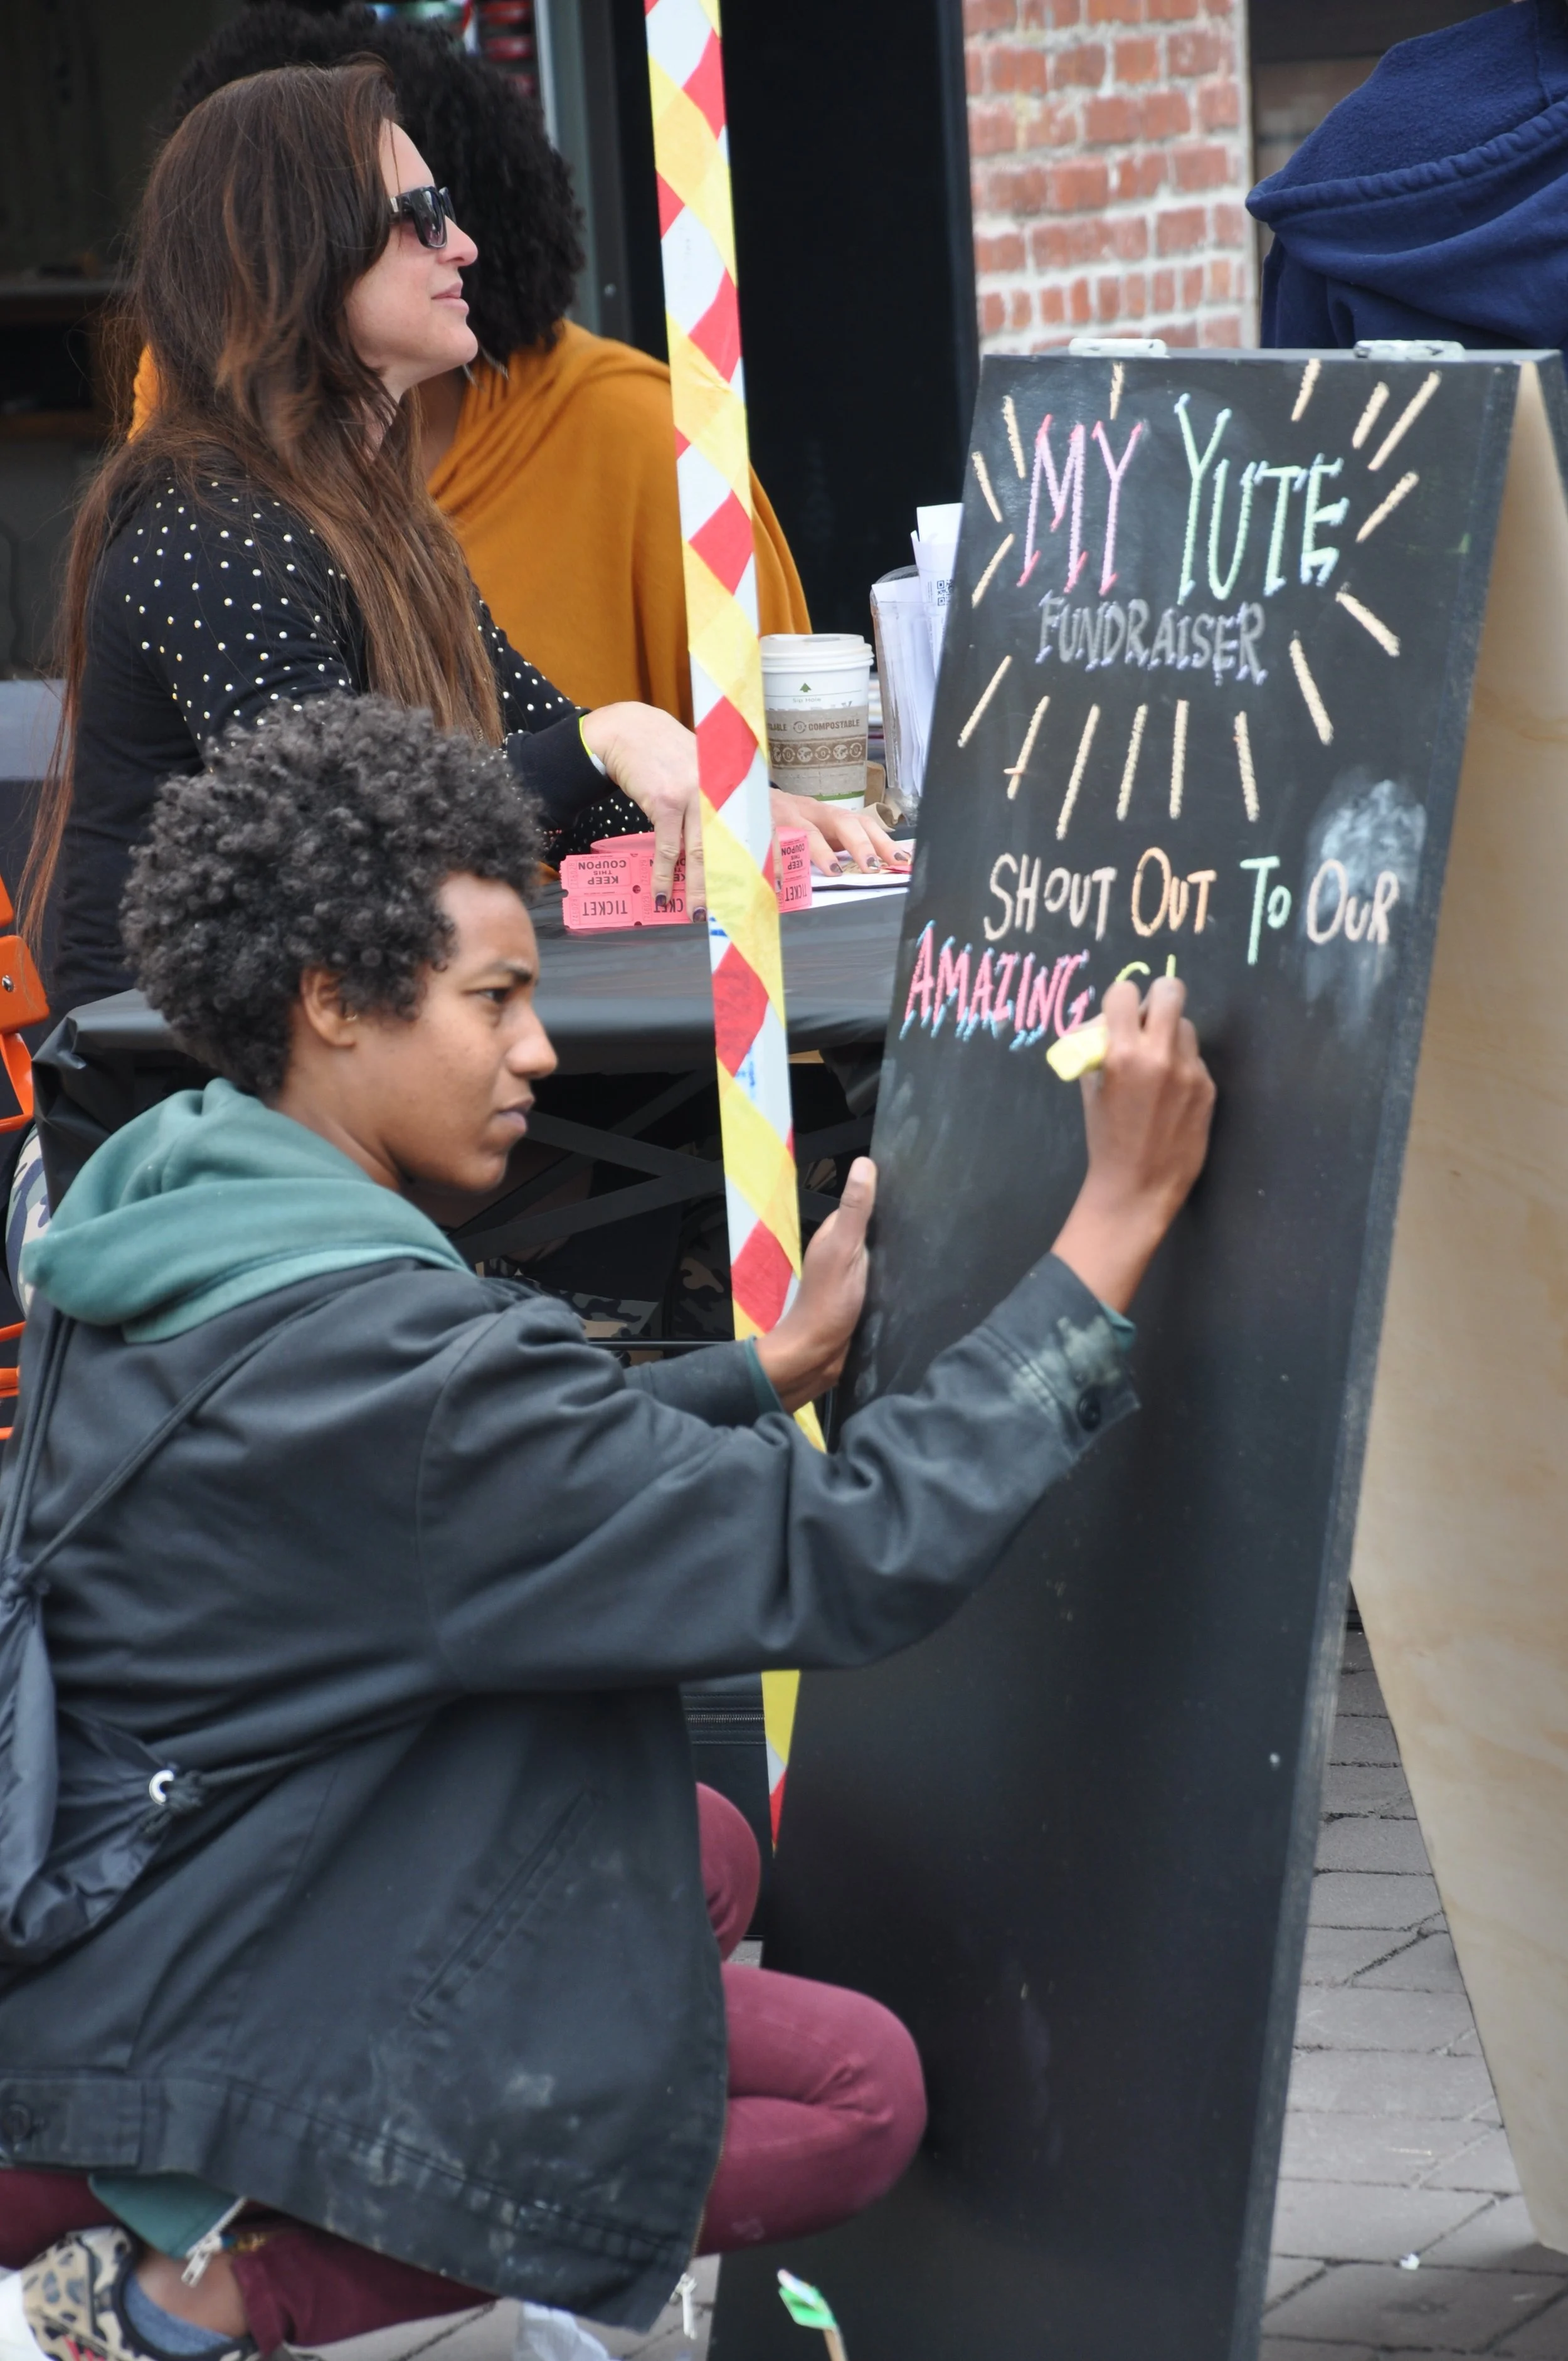 MY YUTE
FUNDRAISER
SHOUT OUT TO OUR
AMAZING
COMPOSTABLE
KEEP
THIS
COUPON
TICKET
TICKET